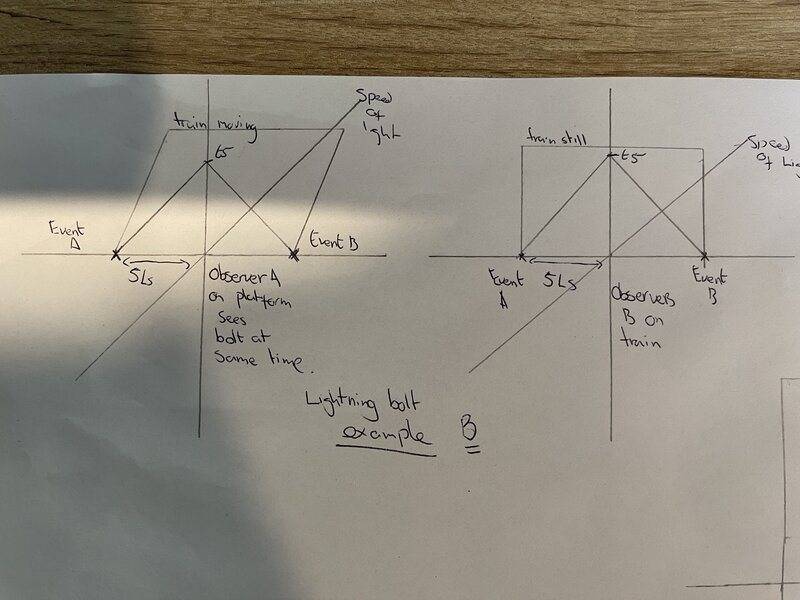 train moving
t5
Speed
of
light
Event
A
5Ls
Event B
Observer A
on platform
sees
bolt at
same time.
train still
t5
Speed
of Lig
Event
A
5Ls
Event
B
Observer
B on
train
Lightning bolt
example B